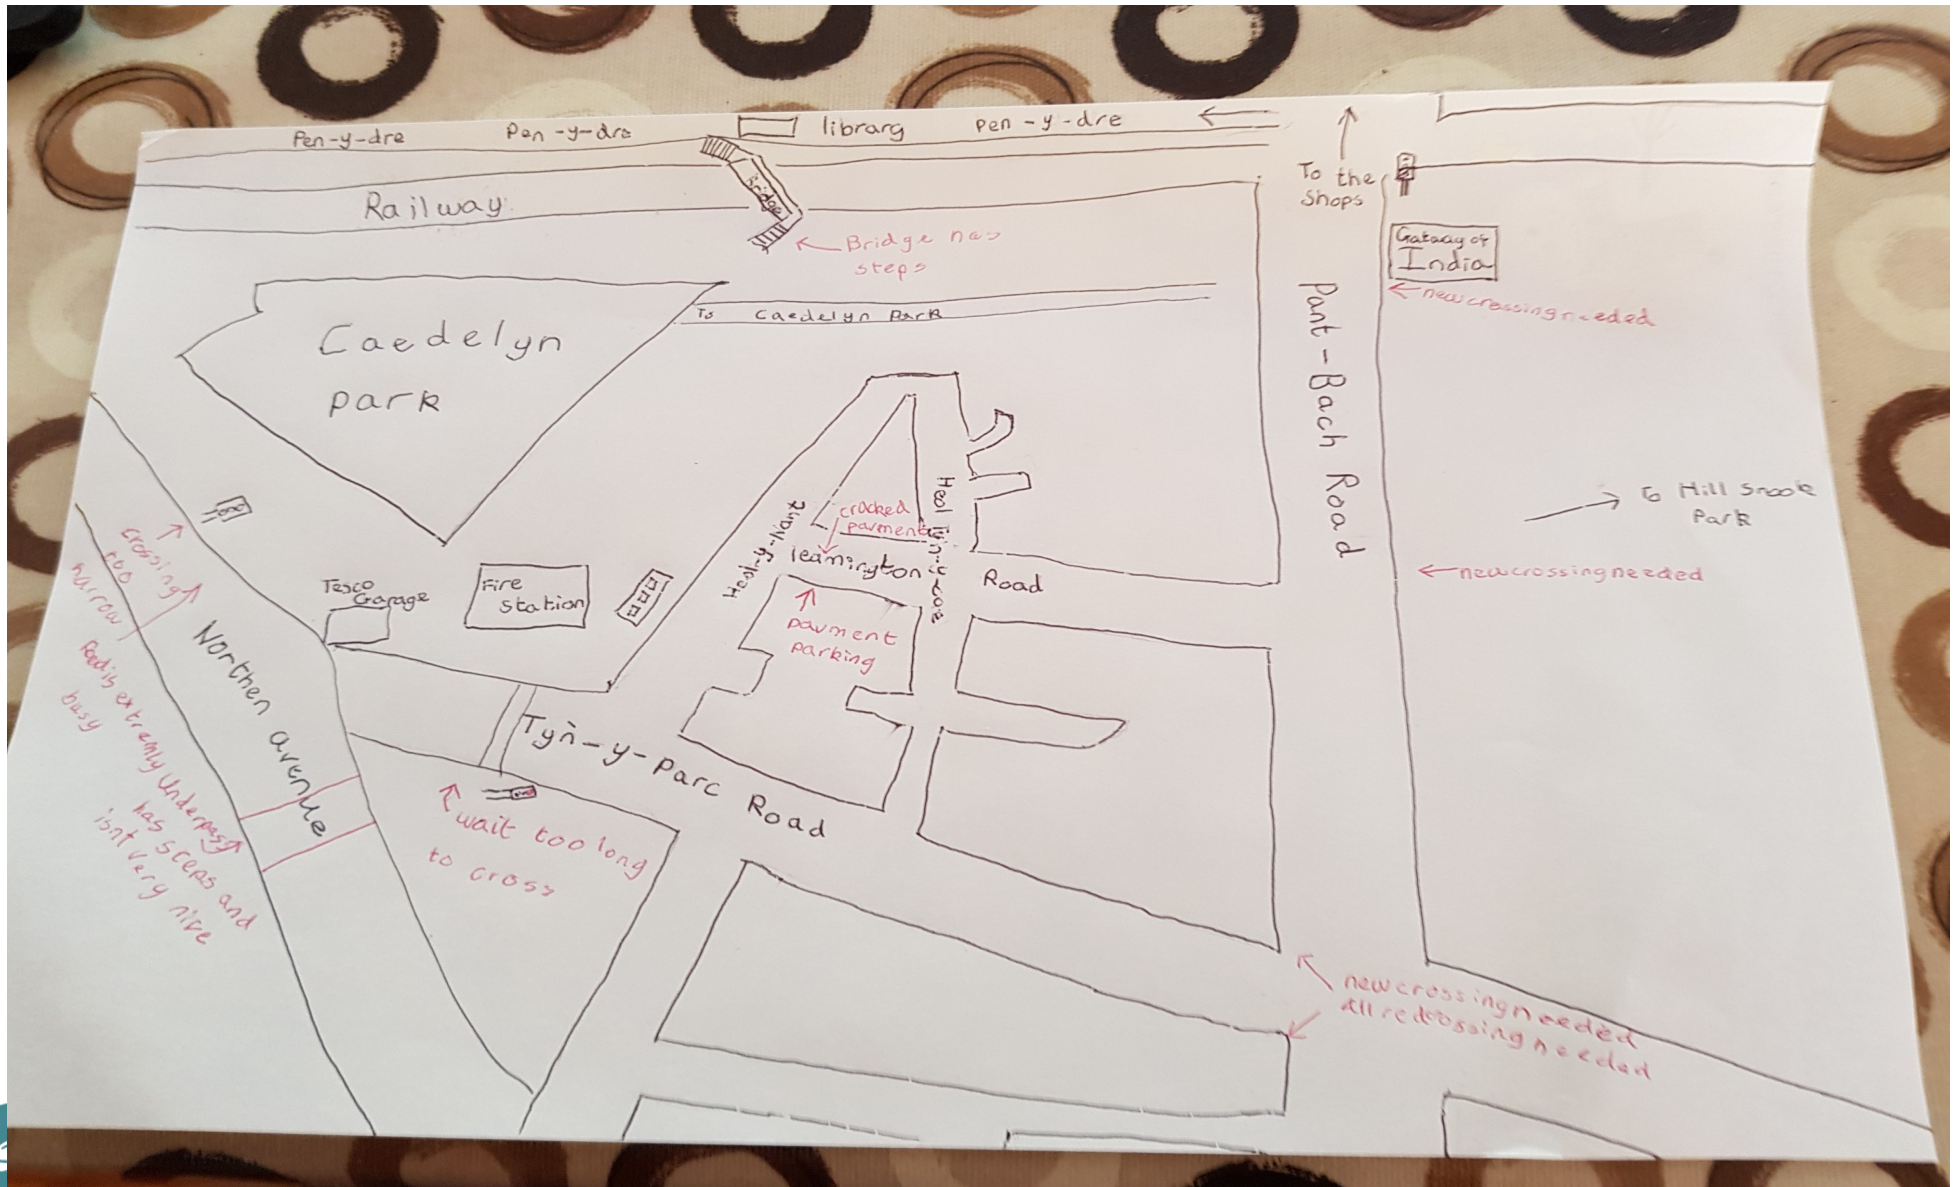 Pen-y-dre
Pen-y-dre
library
Pen-y-dre
To the
Shops
Railway
bridge
Bridge has
steps
Gateway of
India
new crossing needed
To Caedelyn Park
Caedelyn
park
Pant-Bach Road
to Hill Snook
Park
cracked
pavment
Heol-y-Nant
leamington
Road
new crossing needed
crossing
too
narrow
Tesco
Garage
Fire
station
pavment
parking
Northen avenue
Road is extremly
busy
Underpass
has steps and
isnt very nice
Tyn-y-parc Road
wait too long
to cross
new crossing needed
all red crossing needed